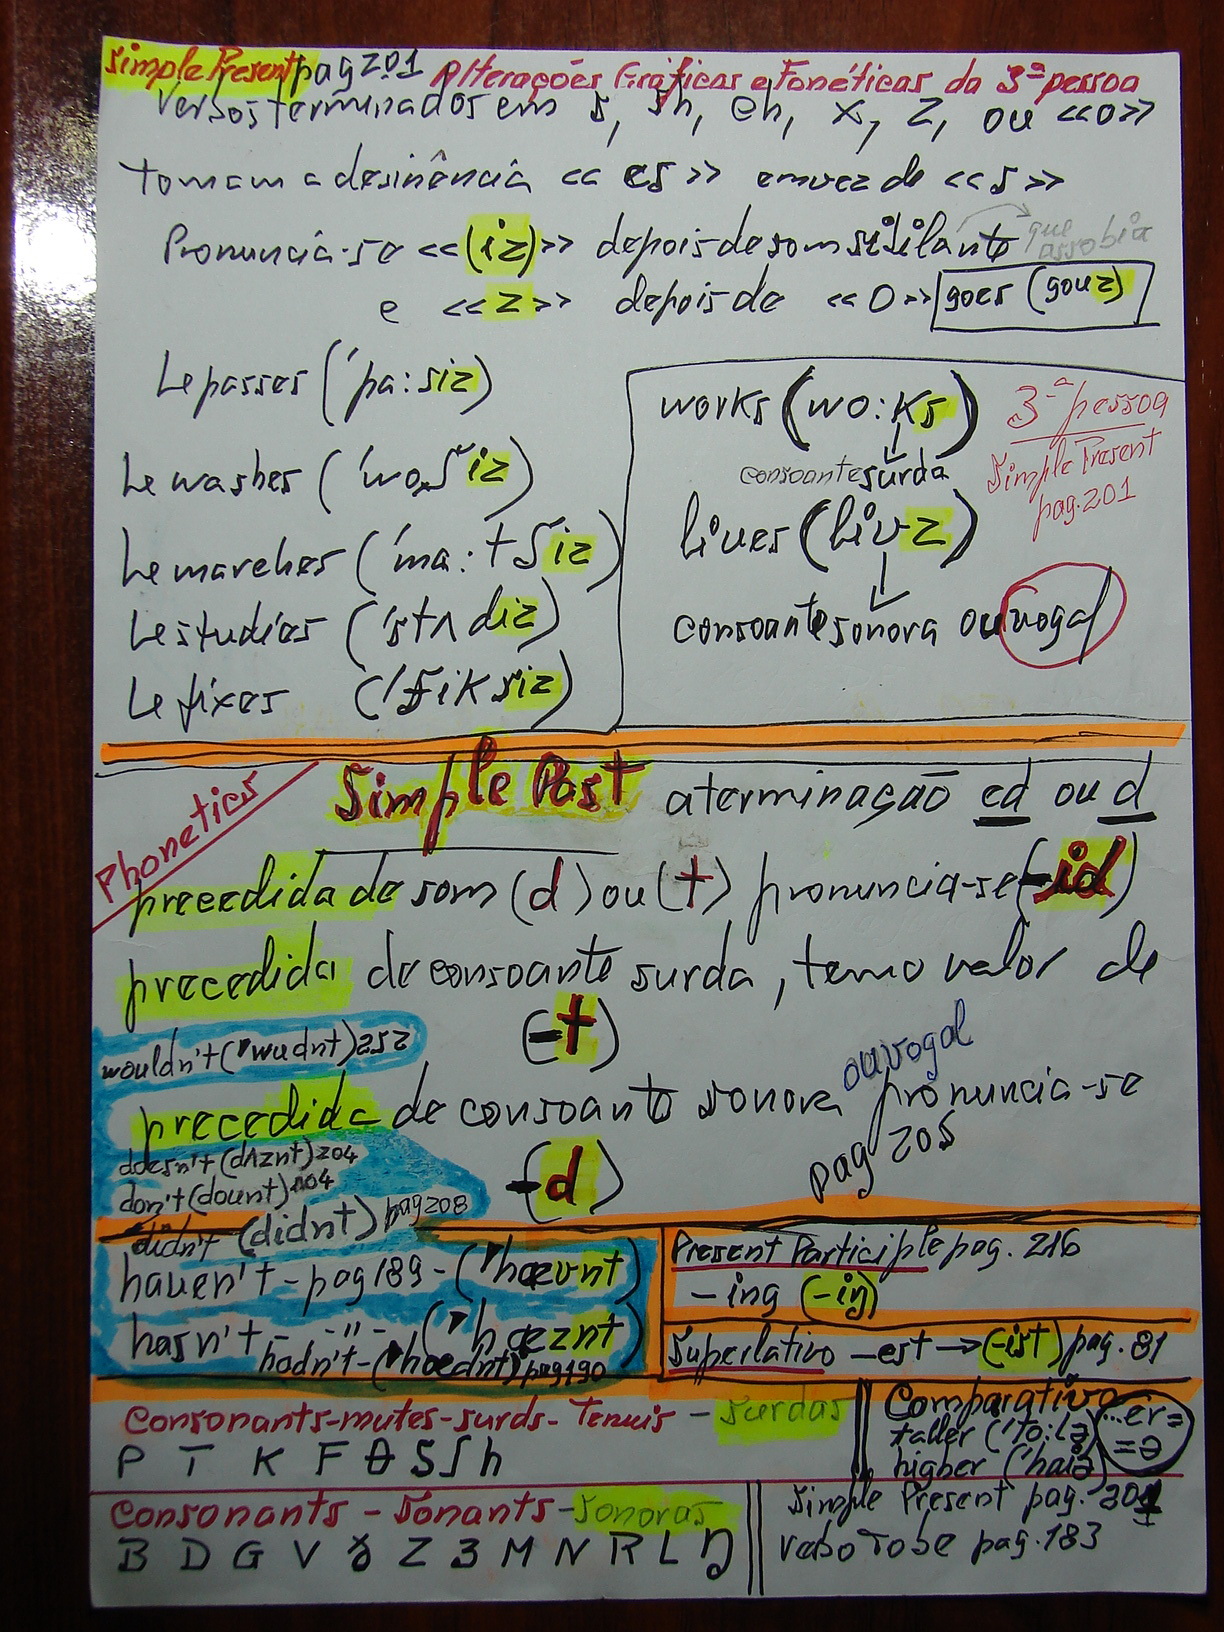 Simple Present pag 201 Alterações Gráficas e Fonéticas da 3ª pessoa
Verbos terminados em s, sh, ch, x, z, ou <<o>>
tomam a desinência << es >> em vez de << s >>
Pronuncia-se <<(iz)>> depois de som sibilante que assobia
e << z >> depois de << O >> goes (gouz)
Le passes ('pa:siz)
Le washes ('woʃiz)
Le marches ('ma:tʃiz)
Le studies ('stʌdiz)
Le fixes ('fiksiz)
works (wo:ks)
consoante surda
lives (livz)
consoante sonora ou vogal
3ª pessoa
Simple Present
pag. 201
Phonetics
Simple Past a terminação ed ou d
precedida de som (d) ou (t) pronuncia-se (-id)
precedida de consoante surda, tem o valor de
(-t)
wouldn't ('wudnt) 252
precedida de consoante sonora ou vogal pronuncia-se
(-d)
pag 205
doesn't (dʌznt) 204
don't (dount) 204
didn't (didnt) pag 208
haven't - pag 189 - ('hævnt)
hasn't - -"- - ('hæznt)
hadn't - ('hædnt) pag 190
Present Participle pag. 216
- ing (-iŋ)
Superlativo - est → (-ist) pag. 81
Consonants - mutes - surds - Tenuis - Surdas
P T K F θ S ʃ h
Comparativo
taller ('to:lə)
higher ('haiə)
...er =
= ə
Consonants - Sonants - Sonoras
B D G V ɣ Z 3 M N R L ŋ
Simple Present pag. 201
verbo To be pag. 183